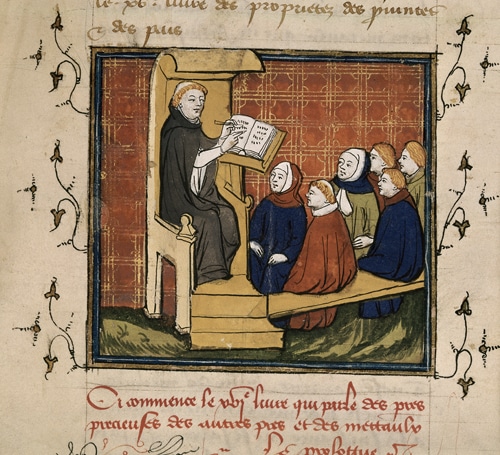 liure des proprietez des puinces
& des pais
Ci commence le xvi^e liure qui parle des pres
precieuses des autres pres et des mettaulx
Le prologue